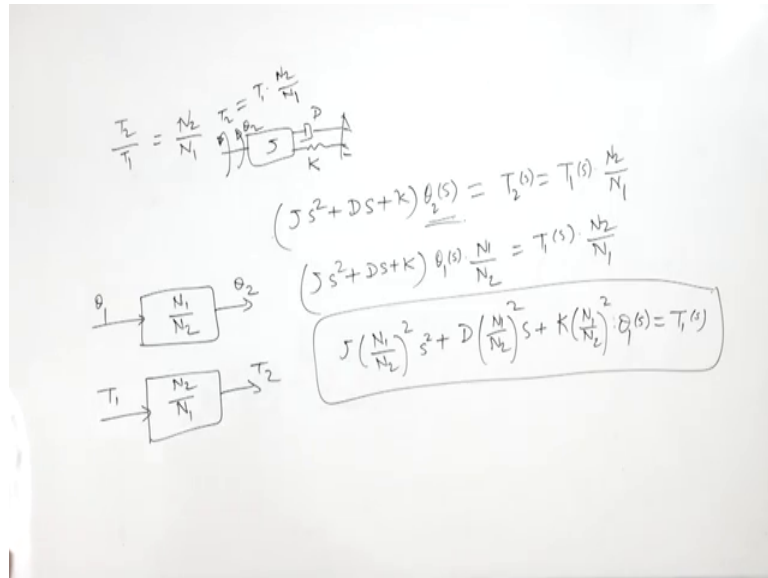 T₂/T₁ = N₂/N₁
T₂ = T₁ · N₂/N₁
θ₂
J
D
K
(Js² + Ds + K) θ₂(s) = T₂(s) = T₁(s) · N₂/N₁
(Js² + Ds + K) θ₁(s) · N₁/N₂ = T₁(s) · N₂/N₁
J(N₁/N₂)² s² + D(N₁/N₂)² s + K(N₁/N₂)² · θ₁(s) = T₁(s)
θ₁
N₁/N₂
θ₂
T₁
N₂/N₁
T₂